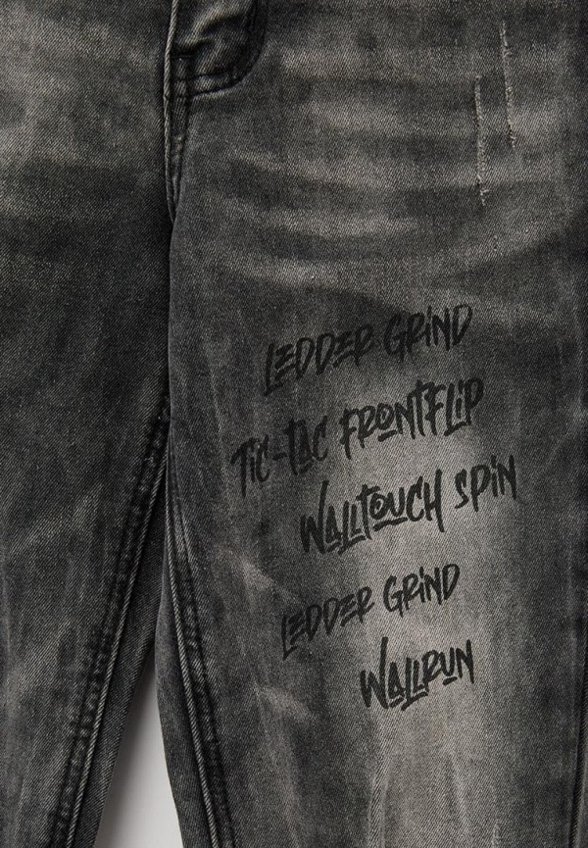 LEDDER GRIND
TIC-TAC FRONTFLIP
WALLTOUCH SPIN
LEDDER GRIND
WALLRUN